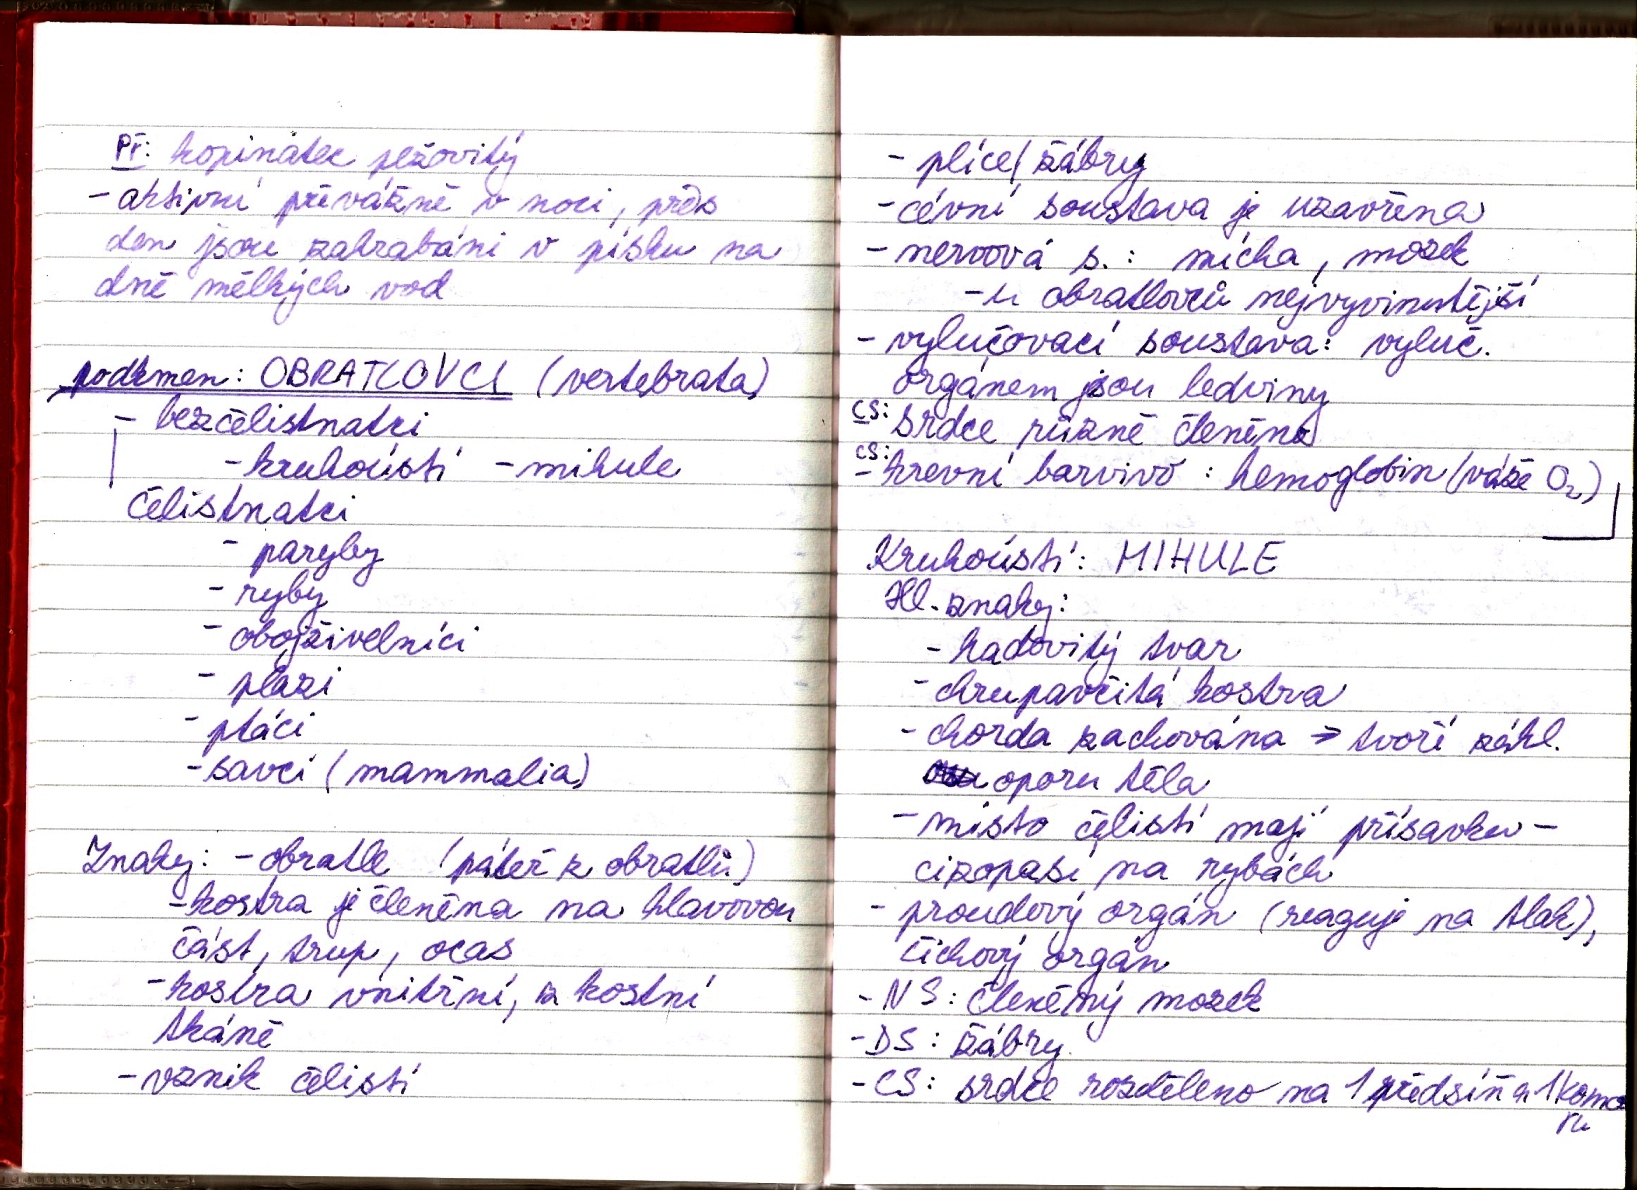 Př: kopinatec plžovitý
- aktivní převážně v noci, přes
den jsou zahrabáni v písku na
dně mělkých vod
podkmen: OBRATLOVCI (vertebrata)
- bezčelistnatci
- kruhoústí - mihule
čelistnatci
- paryby
- ryby
- obojživelníci
- plazi
- ptáci
- savci (mammalia)
Znaky: - obratle (páteř z obratlů)
- kostra je členěna na hlavovou
část, trup, ocas
- kostra vnitřní, z kostní
tkáně
- vznik čelistí
- plíce/žábry
- cévní soustava je uzavřena
- nervová s.: mícha, mozek
- u obratlovců nejvyvinutější
- vylučovací soustava: vyluč.
orgánem jsou ledviny
CS: srdce různě členěno
CS: - krevní barvivo: hemoglobin (váže O₂)
Kruhoústí: MIHULE
Hl. znaky:
- hadovitý tvar
- chrupavčitá kostra
- chorda zachována → tvoří zákl.
oporu těla
- místo čelistí mají přísavku -
cizopasí na rybách
- proudový orgán (reaguje na tlak),
čichový orgán
- NS: členěný mozek
- DS: žábry
- CS: srdce rozděleno na 1 předsíň a 1 komo
ru